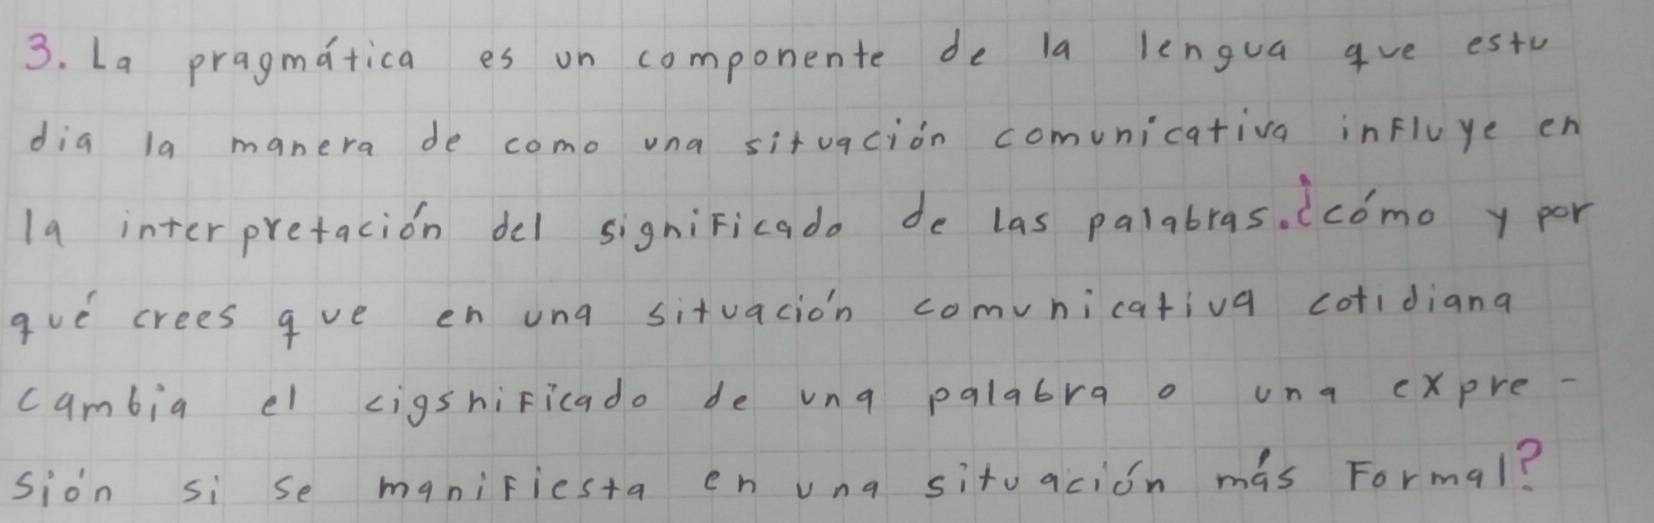 3. La pragmática es un componente de la lengua que estu
dia la manera de como una situación comunicativa influye en
la interpretación del significado de las palabras. ¿cómo y por
qué crees que en una situación comunicativa cotidiana
cambia el cigsnificado de una palabra o una expre-
sión si se manifiesta en una situación más Formal?